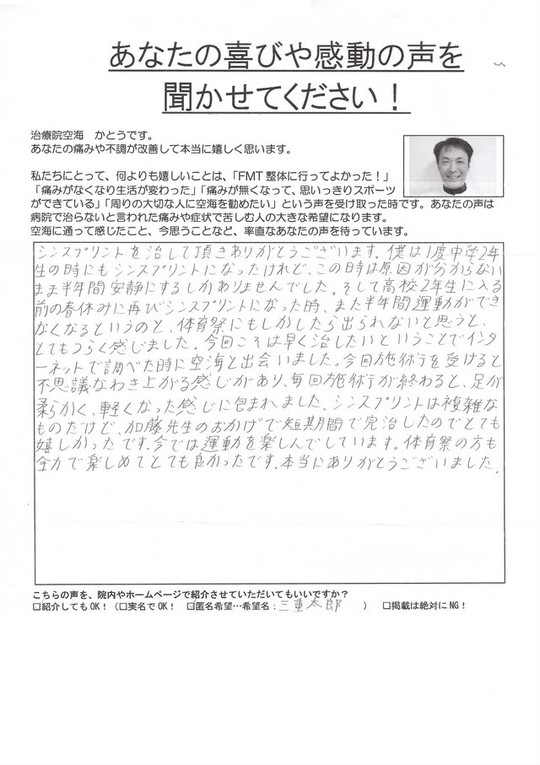 あなたの喜びや感動の声を
聞かせてください！
治療院空海　かとうです。
あなたの痛みや不調が改善して本当に嬉しく思います。
私たちにとって、何よりも嬉しいことは、「FMT整体に行ってよかった！」
「痛みがなくなり生活が変わった」「痛みが無くなって、思いっきりスポーツ
ができている」「周りの大切な人に空海を勧めたい」という声を受け取った時です。あなたの声は
病院で治らないと言われた痛みや症状で苦しむ人の大きな希望になります。
空海に通って感じたこと、今思うことなど、率直なあなたの声を待っています。
シンスプリントを治して頂きありがとうございます。僕は1度中学2年
生の時にもシンスプリントになったけれど、この時は原因が分からない
まま半年間安静にするしかありませんでした。そして高校2年生に入る
前の春休みに再びシンスプリントになった時、また半年間運動ができ
なくなるというのと、体育祭にもしかしたら出られないと思うと、
とてもつらく感じました。今回こそは早く治したいということでインタ
ーネットで調べた時に空海と出会いました。今回施術を受けると
不思議なわき上がる感じがあり、毎回施術が終わると、足が
柔らかく、軽くなった感じに包まれました。シンスプリントは複雑な
ものだけど、加藤先生のおかげで短期間で完治したのでとても
嬉しかったです。今では運動を楽しんでしています。体育祭の方も
全力で楽しめてとても良かったです。本当にありがとうございました。
こちらの声を、院内やホームページで紹介させていただいてもいいですか？
□紹介してもOK！（□実名でOK！　☑匿名希望…希望名：三重太郎　）　□掲載は絶対にNG！